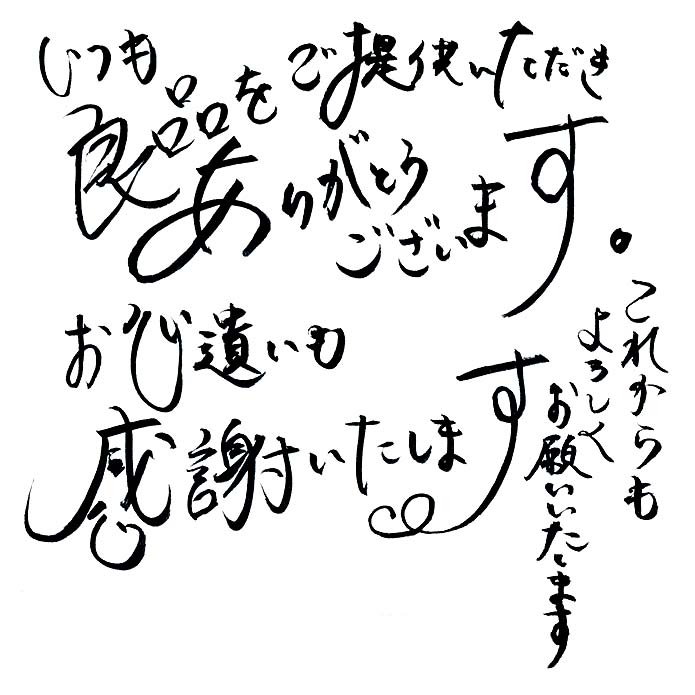 いつも
良品をご提供いただき
ありがとうございます。
お心遣いも
感謝いたします
これからも
よろしく
お願いいたします